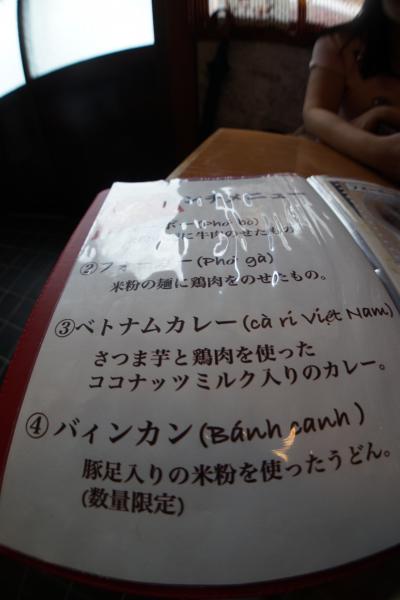 メニュー
(Phở bò)
に牛肉のせたもの
②フォー(Phở gà)
米粉の麺に鶏肉をのせたもの。
③ベトナムカレー(cà ri Việt Nam)
さつま芋と鶏肉を使った
ココナッツミルク入りのカレー。
④バインカン(Bánh canh)
豚足入りの米粉を使ったうどん。
(数量限定)